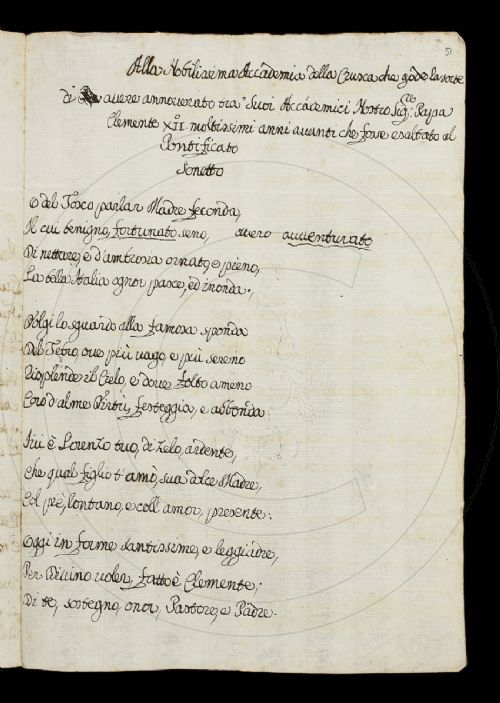 51
Alla Nobilissima Accademia della Crusca che gode la sorte
di avere annoverato tra Suoi Accademici Nostro Sig.re Papa
Clemente XII. moltissimi anni avanti che fosse esaltato al
Pontificato
Sonetto
O del Tosco parlar Madre feconda,
Il cui benigno, fortunato seno, overo avventurato
Di nettare, e d'ambrosia ornato, e pieno,
La bella Italia ognor pasce, ed inonda.
Volgi lo sguardo alla famosa sponda
Del Tebro, ove più vago, e più sereno
Risplende il Cielo, e dove folto ameno
Coro d'alme Virtù, festeggia, e abbonda
Ivi è Lorenzo tuo, di zelo, ardente,
Che qual figlio t'amò, sua dolce Madre,
Col piè, lontano, e coll'amor, presente:
Oggi in forme santissime, e leggiadre,
Per Divino voler, fatto è Clemente,
Di te, sostegno, onor, Pastore, e Padre.